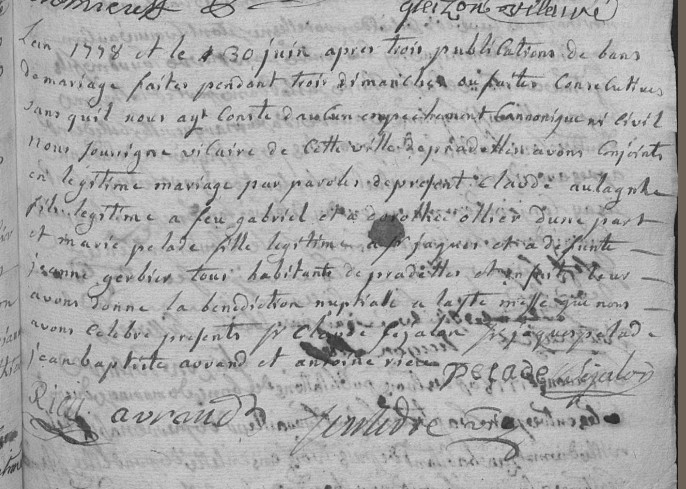 gleizon vicaire
Lan 1778 et le 30 juin apres trois publications de bans
de mariage faites pendant trois dimanches ou faites Consecutives
sans quil nous ayt Conste daucun empechement Cannonique ni Civil
nous soussigne vicaire de Cette ville de pradelles avons Conjoints
en legitime mariage par paroles de present Claude aulagnhe
fils legitime a feu gabriel et a dorothee ollier dune part
et marie pelade fille legitime a sr jaques et a defunte
jeanne gerbier tous habitants de pradelles et ensuite leur
avons donne la benediction nuptialle a la ste messe que nous
avons Celebre presents sr Claude Sejalon sr jaques pelade
jean baptiste avrand et antoine riere
PELADE Sejalon
avrand